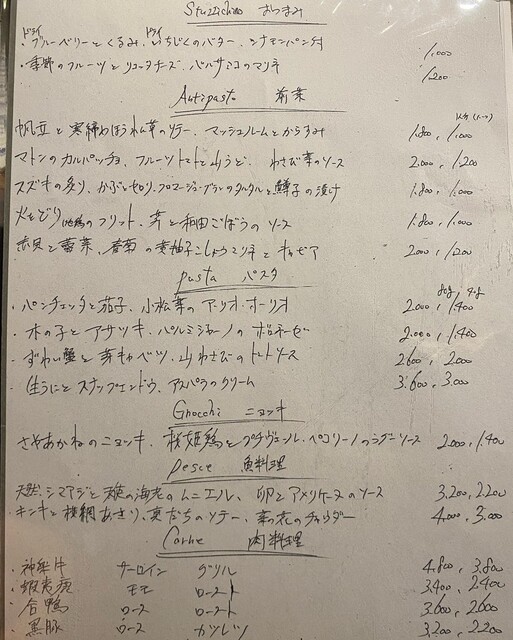 Stuzzichino おつまみ
ドライ ドライ
・ブルーベリーとくるみ、いちじくのバター、シナモンパン付 1,000
・季節のフルーツとリコッタチーズ、バルサミコのマリネ 1,200
Antipasto 前菜
帆立と寒締めほうれん草のソテー、マッシュルームとからすみ 1,800, 1,000
マトンのカルパッチョ、フルーツトマトと山うど、わさび菜のソース 2,000, 1,200
スズキの炙り、かぶとセロリ、フロマージュ・ブランのタルタルと鱒子の漬け 1,800, 1,000
火とどり(地鶏)のフリット、芹と和田ごぼうのソース 1,800, 1,000
赤貝と蕾菜、春菊の黄柚子こしょうマリネとキャビア 2,000, 1,200
pasta パスタ
80g, 40g
・パンチェッタと茄子、小松菜のアーリオ・オーリオ 2,000, 1,400
・木の子とアサツキ、パルミジャーノのボロネーゼ 2,000, 1,400
・ずわい蟹と芽キャベツ、山わさびのトマトソース 2,600, 2,000
・生うにとスナップエンドウ、アスパラのクリーム 3,600, 3,000
Gnocchi ニョッキ
さやあかねのニョッキ、桜姫鶏とプチヴェール、ペコリーノのラグーソース 2,000, 1,400
Pesce 魚料理
天然シマアジと天使の海老のムニエル、卵とアメリケーヌのソース 3,200, 2,200
・キンキと横網あさり、真だちのソテー、菜の花のチャウダー 4,000, 3,000
Carne 肉料理
・神楽牛 サーロイン グリル 4,800, 3,800
・蝦夷鹿 モモ ロースト 3,400, 2,400
・合鴨 ロース ロースト 3,600, 2,600
・黒豚 ロース カツレツ 3,200, 2,200